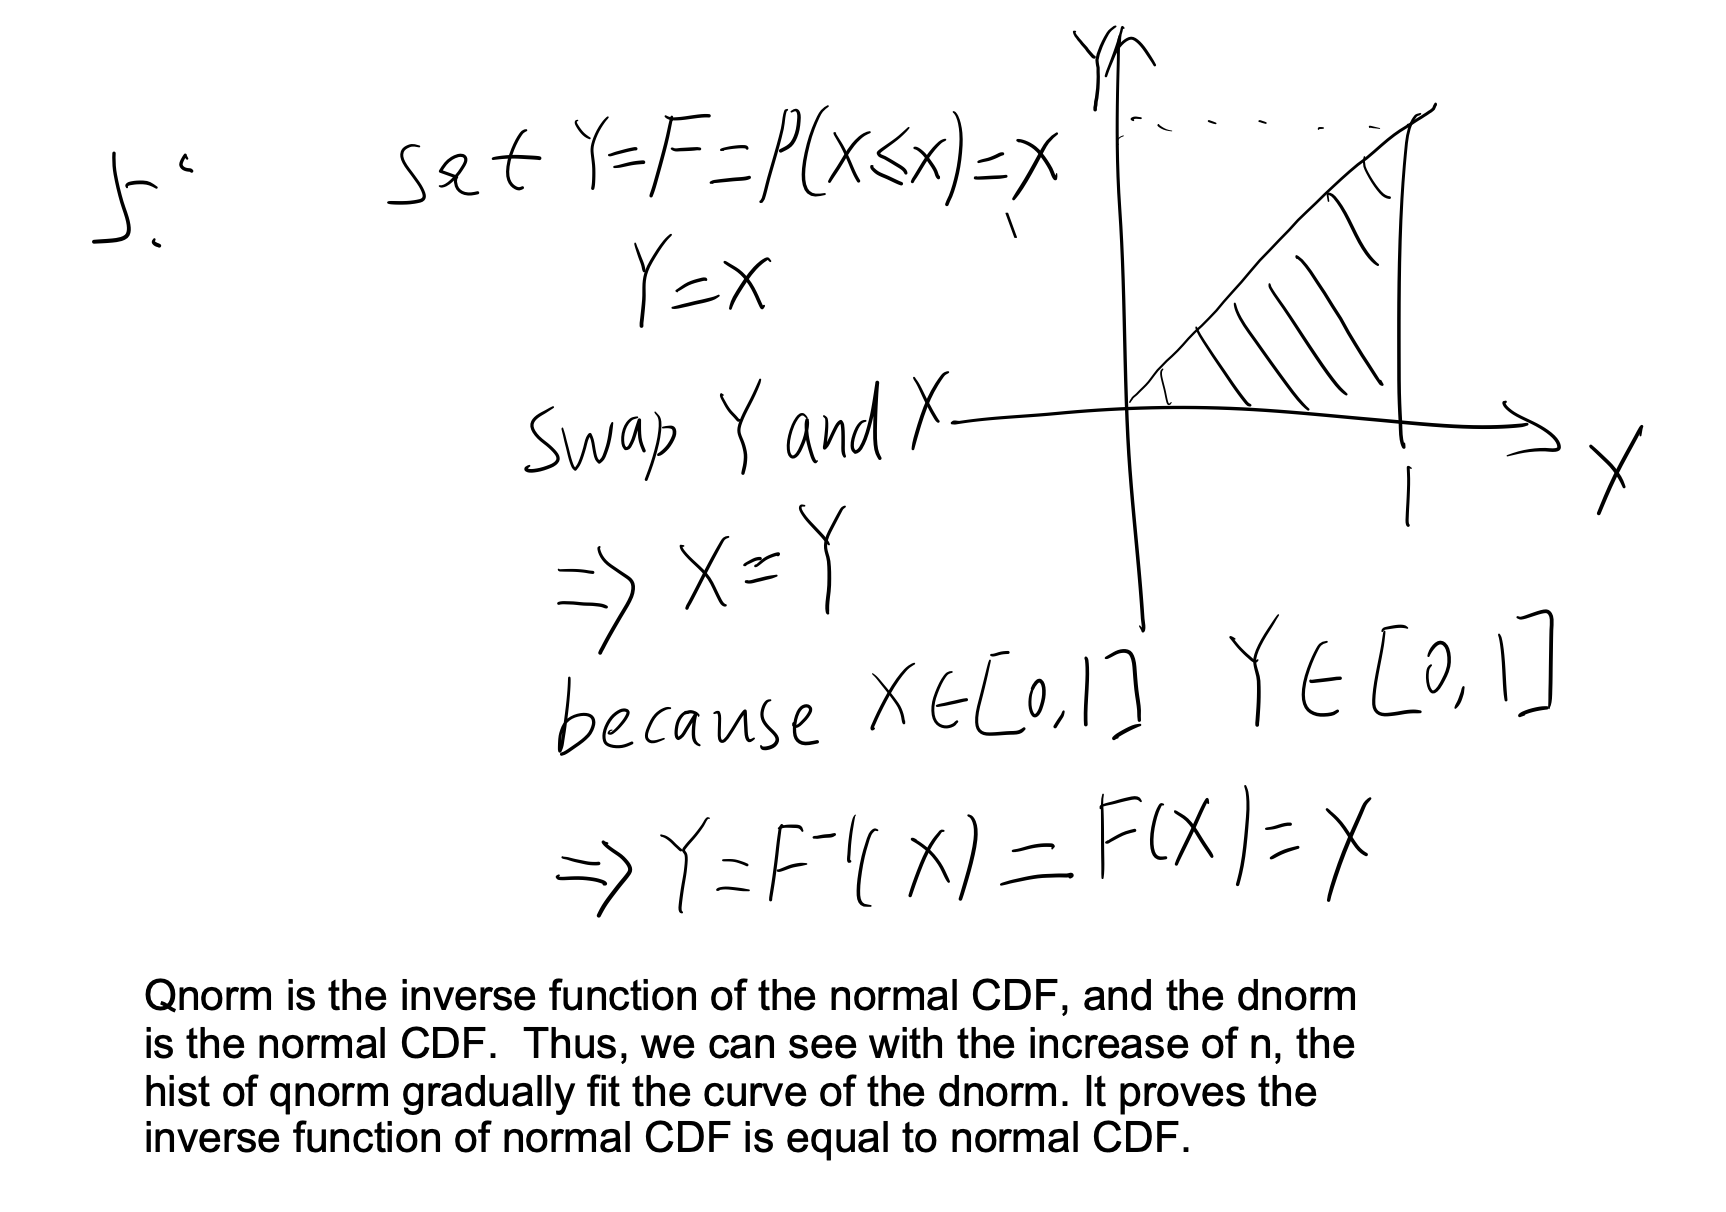 5:
set Y=F=P(X≤x)=x
Y=x
swap Y and X
⇒ X=Y
because X∈[0,1] Y∈[0,1]
⇒ Y=F⁻¹(X)=F(X)=X
Y
X
1
Qnorm is the inverse function of the normal CDF, and the dnorm
is the normal CDF. Thus, we can see with the increase of n, the
hist of qnorm gradually fit the curve of the dnorm. It proves the
inverse function of normal CDF is equal to normal CDF.